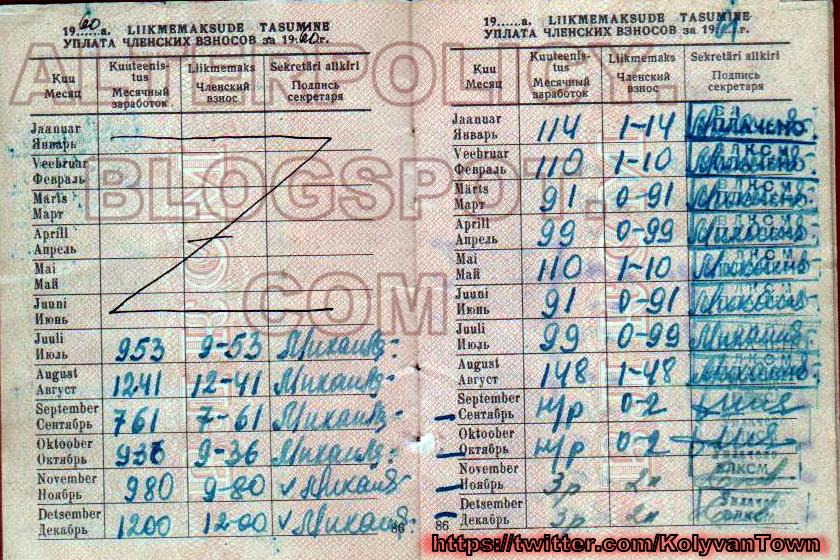 1960.a. LIIKMEMAKSUDE TASUMINE
УПЛАТА ЧЛЕНСКИХ ВЗНОСОВ за 1960г.
Kuu
Месяц
Kuuteenis-
tus
Месячный
заработок
Liikmemaks
Членский
взнос
Sekretäri allkiri
Подпись
секретаря
Jaanuar
Январь
Veebruar
Февраль
Märts
Март
Aprill
Апрель
Mai
Май
Juuni
Июнь
Juuli
Июль 953 9-53
August
Август 1241 12-41
September
Сентябрь 761 7-61
Oktoober
Октябрь 936 9-36
November
Ноябрь 980 9-80
Detsember
Декабрь 1200 12-00
86
19......a. LIIKMEMAKSUDE TASUMINE
УПЛАТА ЧЛЕНСКИХ ВЗНОСОВ за 1961г.
Kuu
Месяц
Kuuteenis-
tus
Месячный
заработок
Liikmemaks
Членский
взнос
Sekretäri allkiri
Подпись
секретаря
Jaanuar
Январь 114 1-14
ПЛАЧЕНО
Veebruar
Февраль 110 1-10
ВЛКСМ
Märts
Март 91 0-91
ВЛКСМ
Aprill
Апрель 99 0-99
Mai
Май 110 1-10
Juuni
Июнь 91 0-91
Juuli
Июль 99 0-99
August
Август 148 1-48
September
Сентябрь н/р 0-2
Oktoober
Октябрь н/р 0-2
November
Ноябрь 3р 2к
ВЛКСМ
Detsember
Декабрь 3р 2к
86
ALTERPOLICY.
BLOGSPOT.
COM
https://twitter.com/KolyvanTown